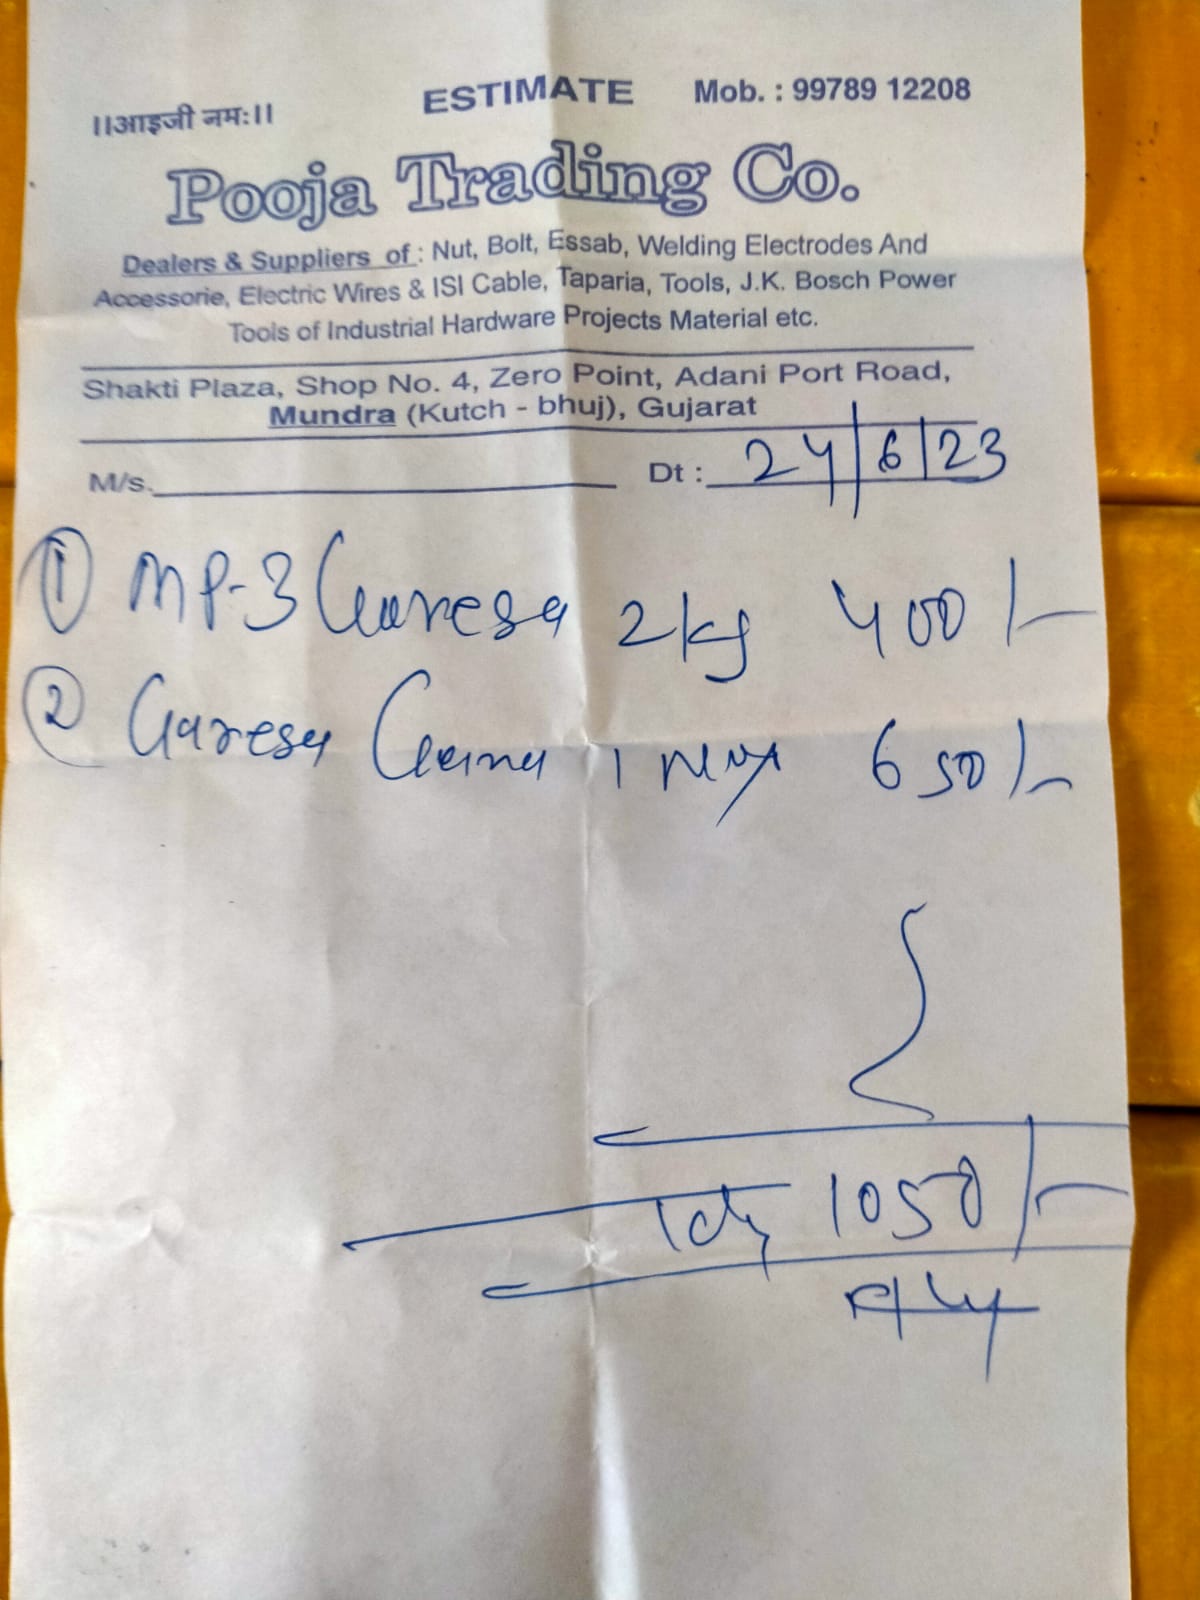 ESTIMATE Mob. : 99789 12208
।।आइजी नमः।।
Pooja Trading Co.
Dealers & Suppliers of : Nut, Bolt, Essab, Welding Electrodes And
Accessorie, Electric Wires & ISI Cable, Taparia, Tools, J.K. Bosch Power
Tools of Industrial Hardware Projects Material etc.
Shakti Plaza, Shop No. 4, Zero Point, Adani Port Road,
Mundra (Kutch - bhuj), Gujarat
M/s. Dt : 24/6/23
① MP-3 2 kg 400/-
② 1 650/-
1050/-